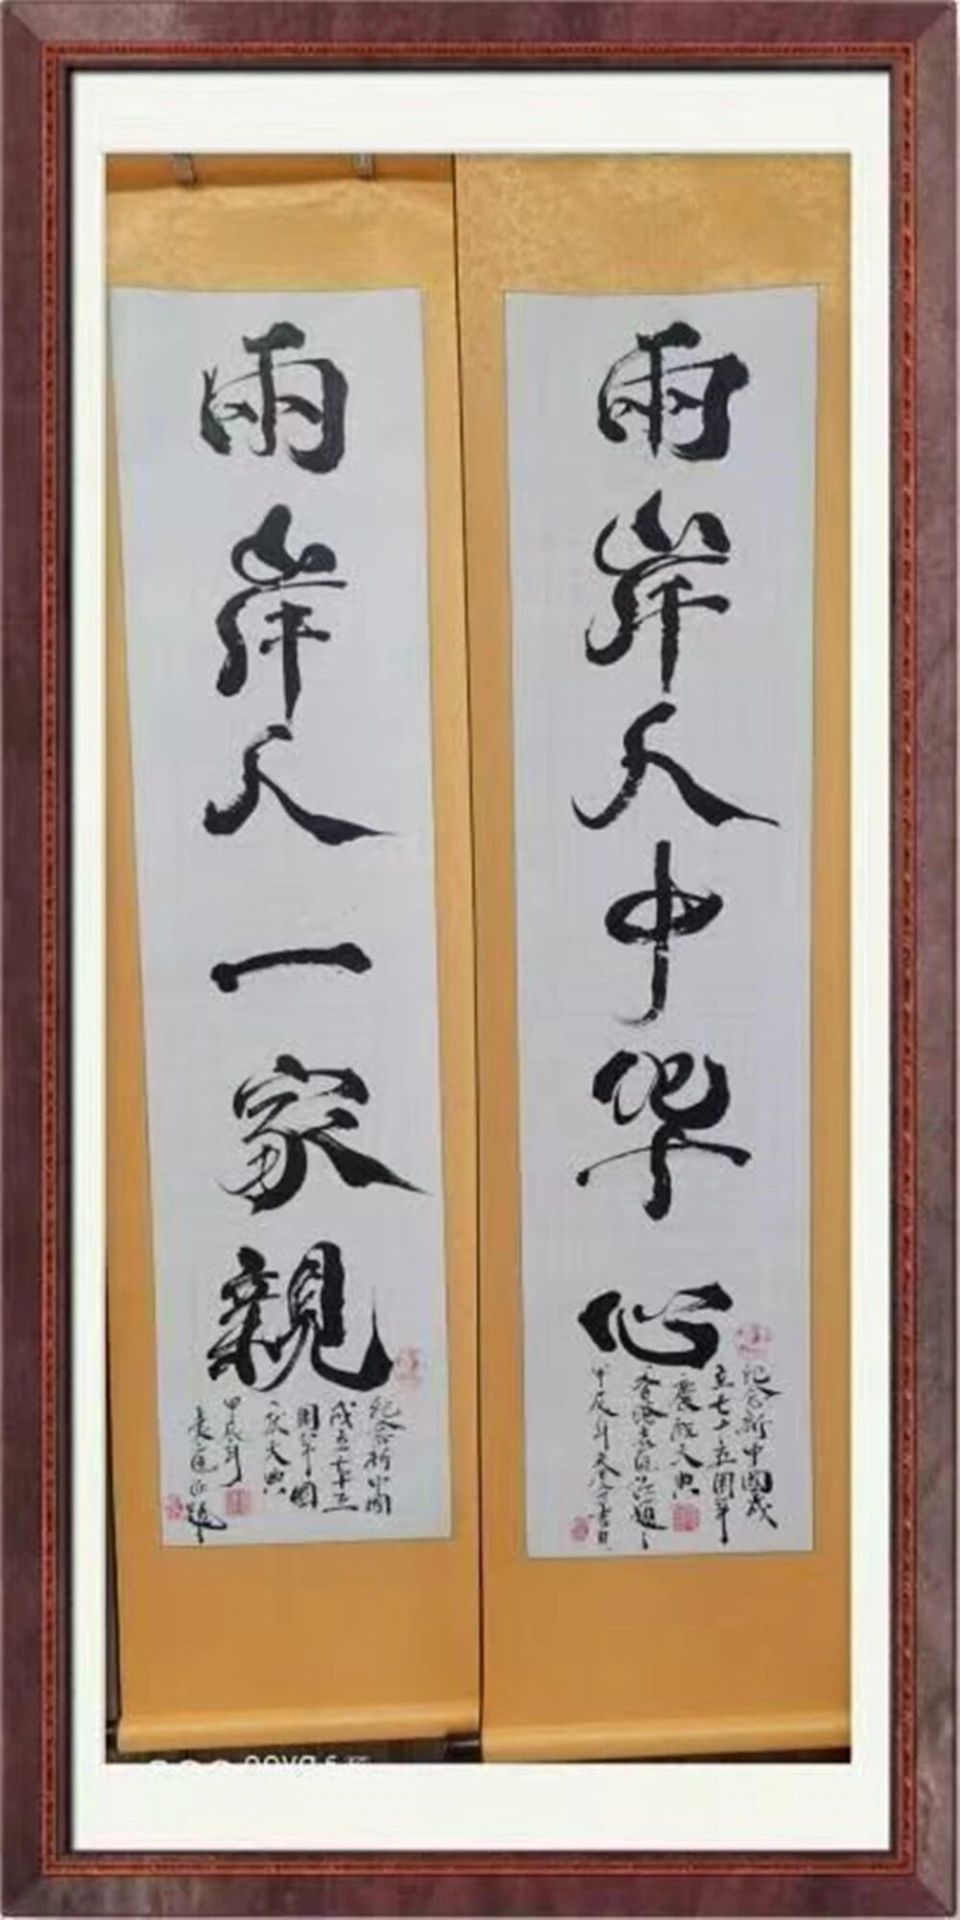 兩岸人中華心
紀念新中國成
立七十五周年
慶祝大典
甲辰年
兩岸人一家親
紀念新中國
成立七十五
周年國
慶大典
甲辰年